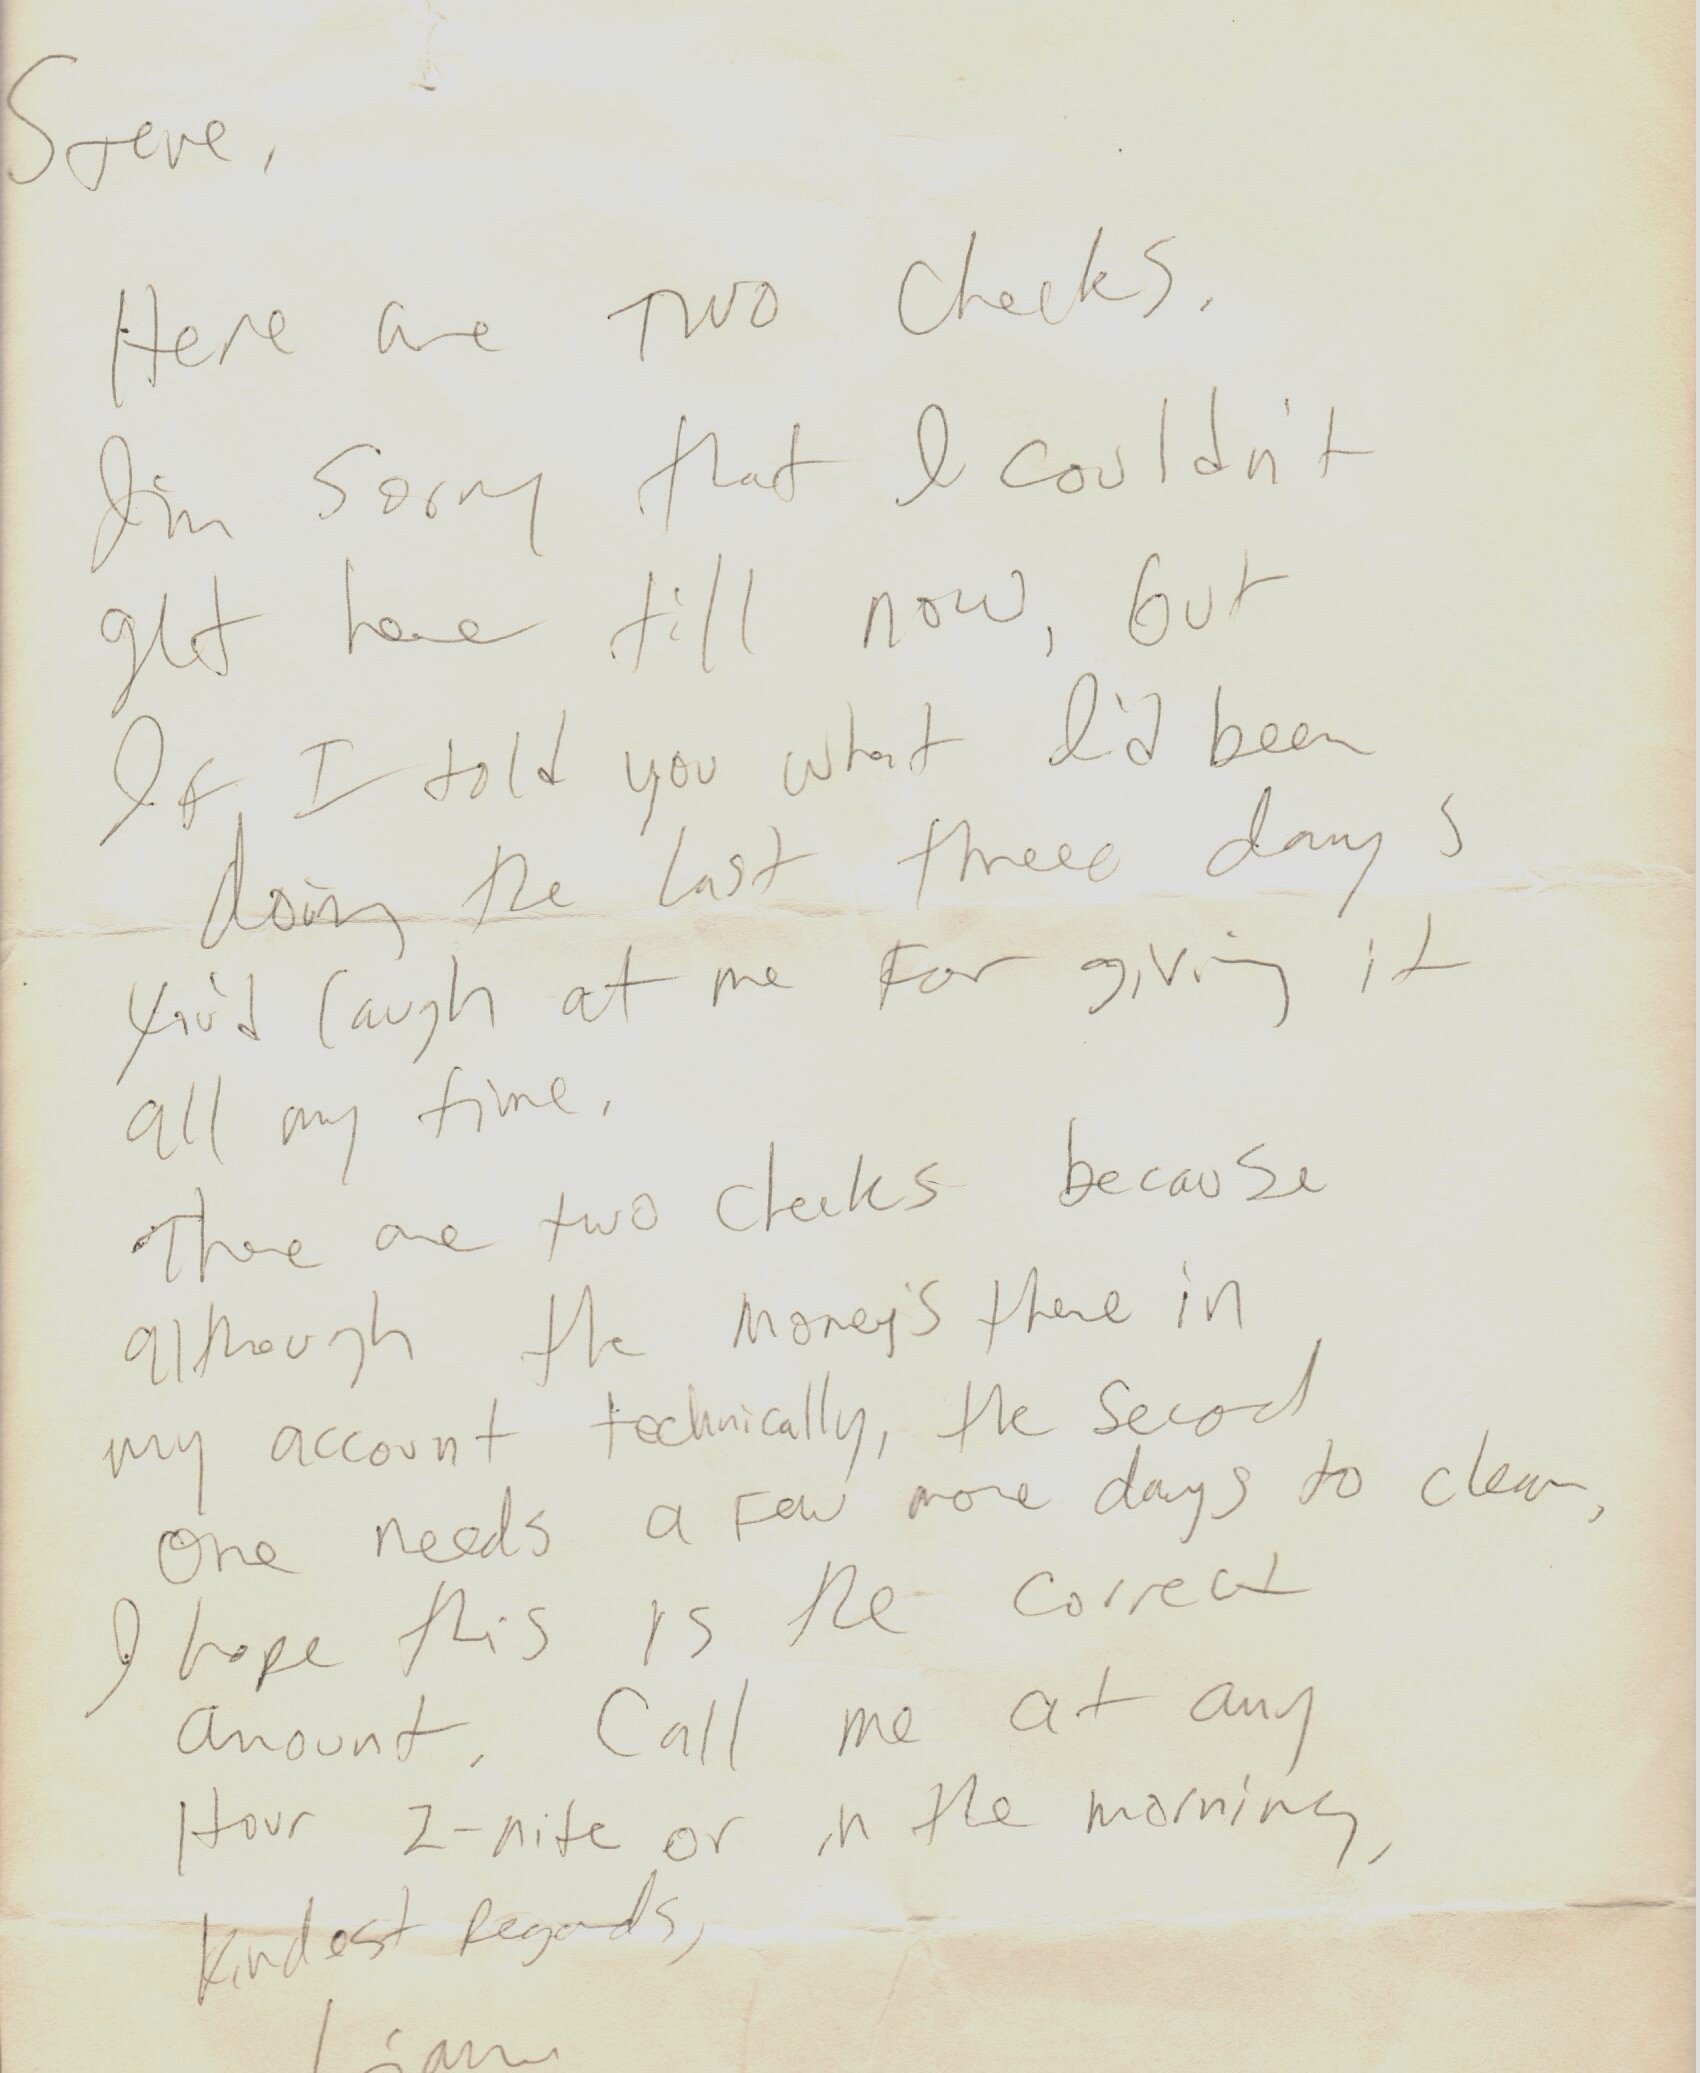 Steve,
Here are two checks.
I'm sorry that I couldn't
get here till now, but
If I told you what I'd been
doing the last three days
you'd laugh at me for giving it
all my time.
There are two checks because
although the money's there in
my account technically, the second
one needs a few more days to clear,
I hope this is the correct
amount. Call me at any
Hour 2-nite or in the morning,
Kindest Regards,
Liam